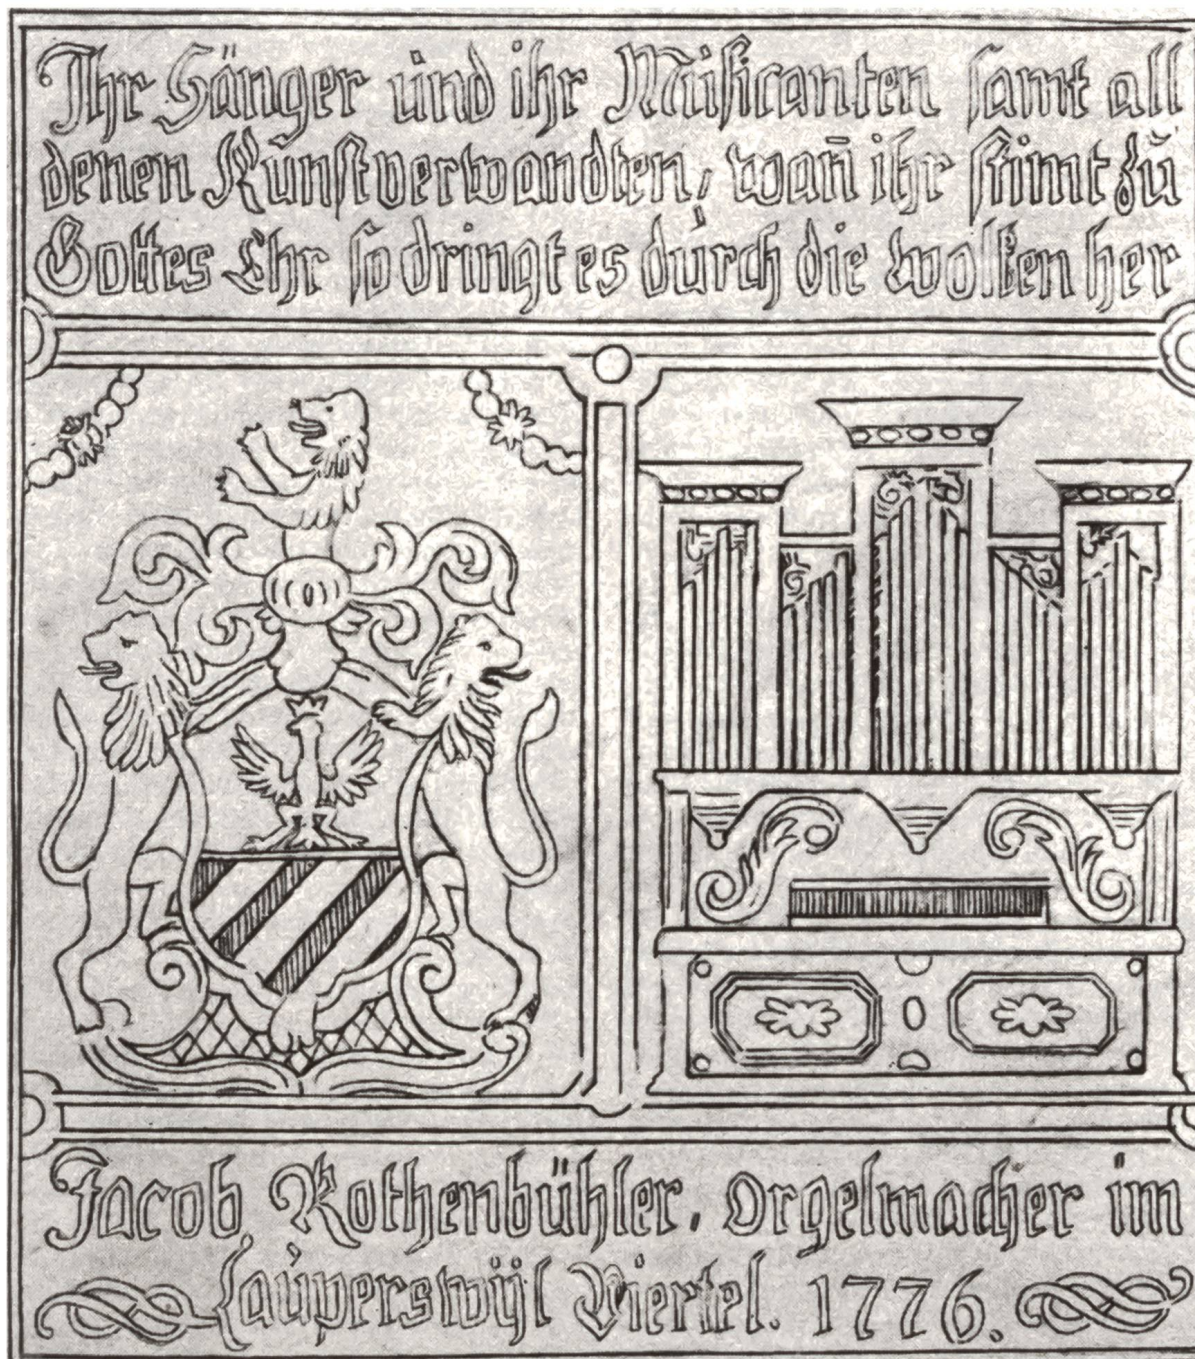 Ihr Sänger ůnd ihr Můsicanten samt all
denen Kůnstverwandten, wan̄ ihr stimt zů
Gottes Ehr so dringt es důrch die wolken her
Jacob Rothenbühler, Orgelmacher im
Laůperswÿl Viertel. 1776.